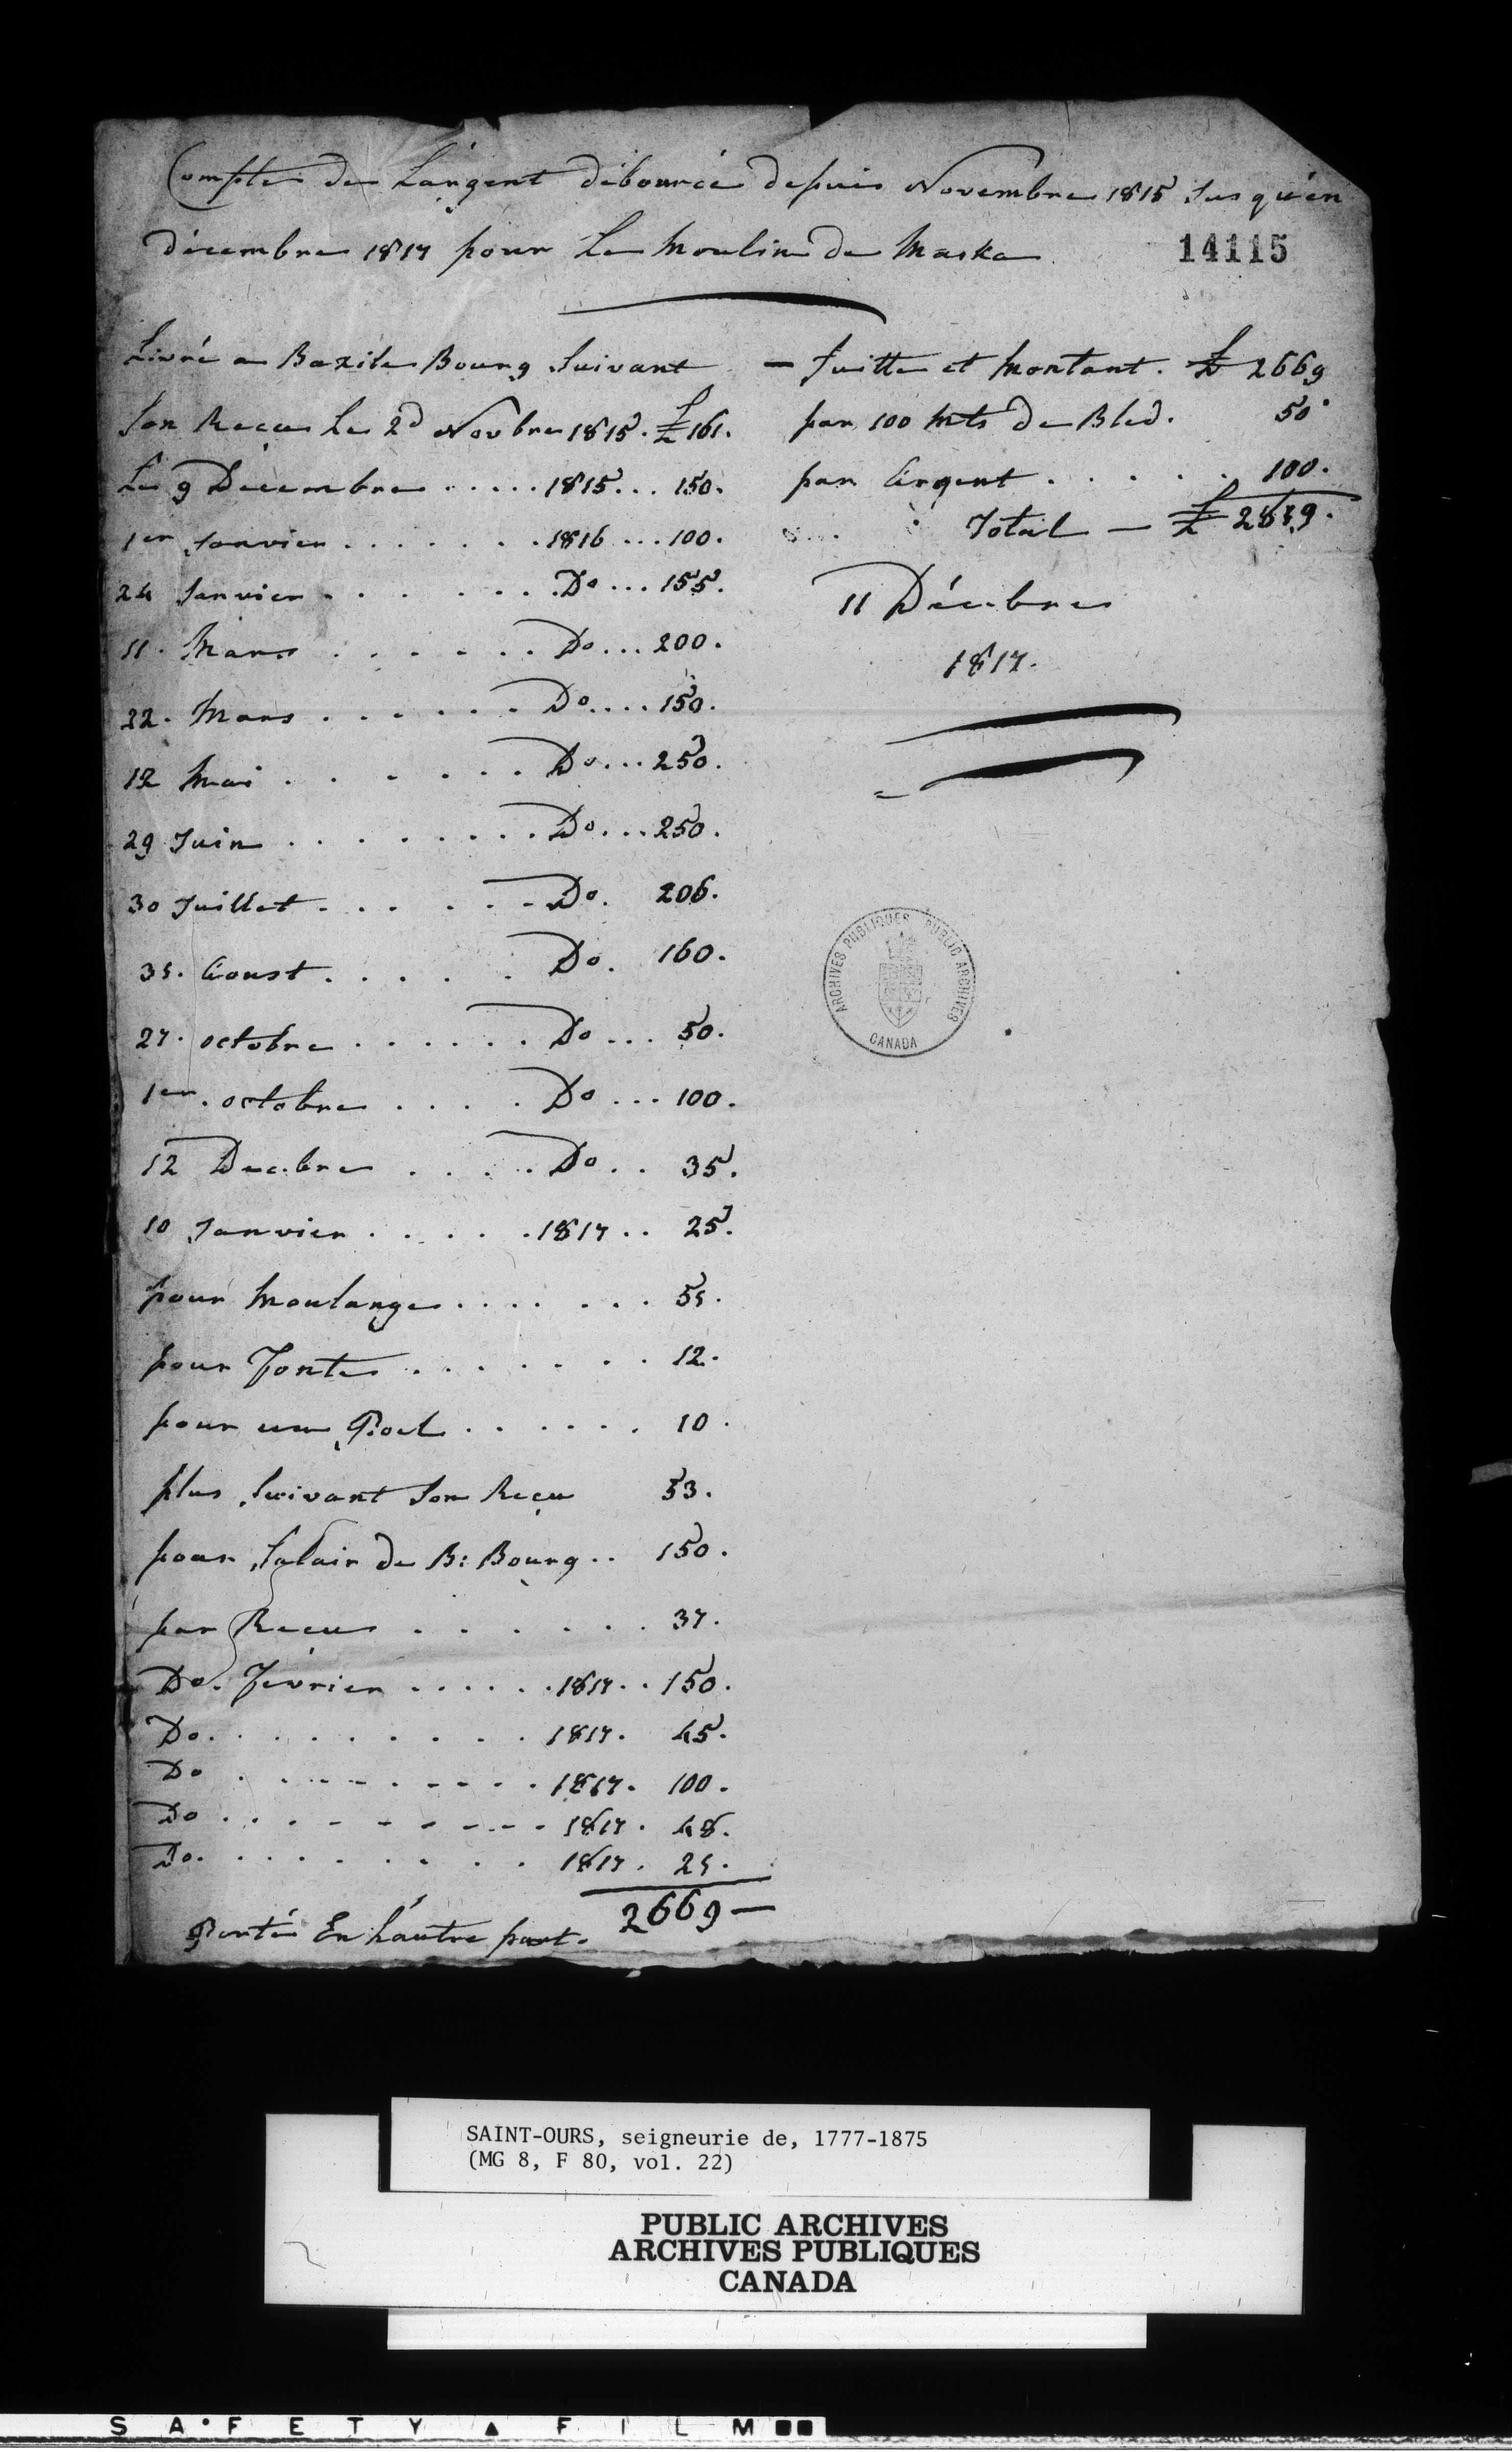 Compte de L'argent débourcé depuis Novembre 1815 Jusqu'en
décembre 1817 pour Le Moulin de Maska
14115
Livré a Bazile Bourg Suivant
Son Reçu Le 2d Novbre 1815. £ 161.
Le 9 Décembre ..... 1815 ... 150.
1er Janvier ....... 1816 ... 100.
24 Janvier ....... Do ... 155.
11. Mars ...... Do ... 200.
22. Mars ...... Do .... 150.
12 Mai ...... Do ... 250.
29 Juin ........ Do ... 250.
30 Juillet ...... Do. 206.
31. Aoust ..... Do. 160.
27. octobre ...... Do ... 50.
1er. octobre .... Do ... 100.
12 Decbre .... Do .. 35.
10 Janvier ..... 1817 .. 25.
pour Moulange ....... 51.
pour Fonte ....... 12.
pour un Poel ...... 10.
plus Suivant Son Reçu 53.
pour Salair de B: Bourg .. 150.
par Recus ...... 37.
Do. Fevrier ...... 1817 .. 150.
Do. ........ 1817. 45.
Do ......... 1817. 100.
Do ......... 1817. 48.
Do. ........ 1817. 21.
2669 —
Porté En L'autre part.
— Suitte et Montant. £ 2669
par 100 Mts de Bled. 50.
par Argent ..... 100.
Total — £ 2819.
11 Décbre
1817.
ARCHIVES PUBLIQUES PUBLIC ARCHIVES
CANADA
SAINT-OURS, seigneurie de, 1777-1875
(MG 8, F 80, vol. 22)
PUBLIC ARCHIVES
ARCHIVES PUBLIQUES
CANADA
SAFETY ▲ FILM